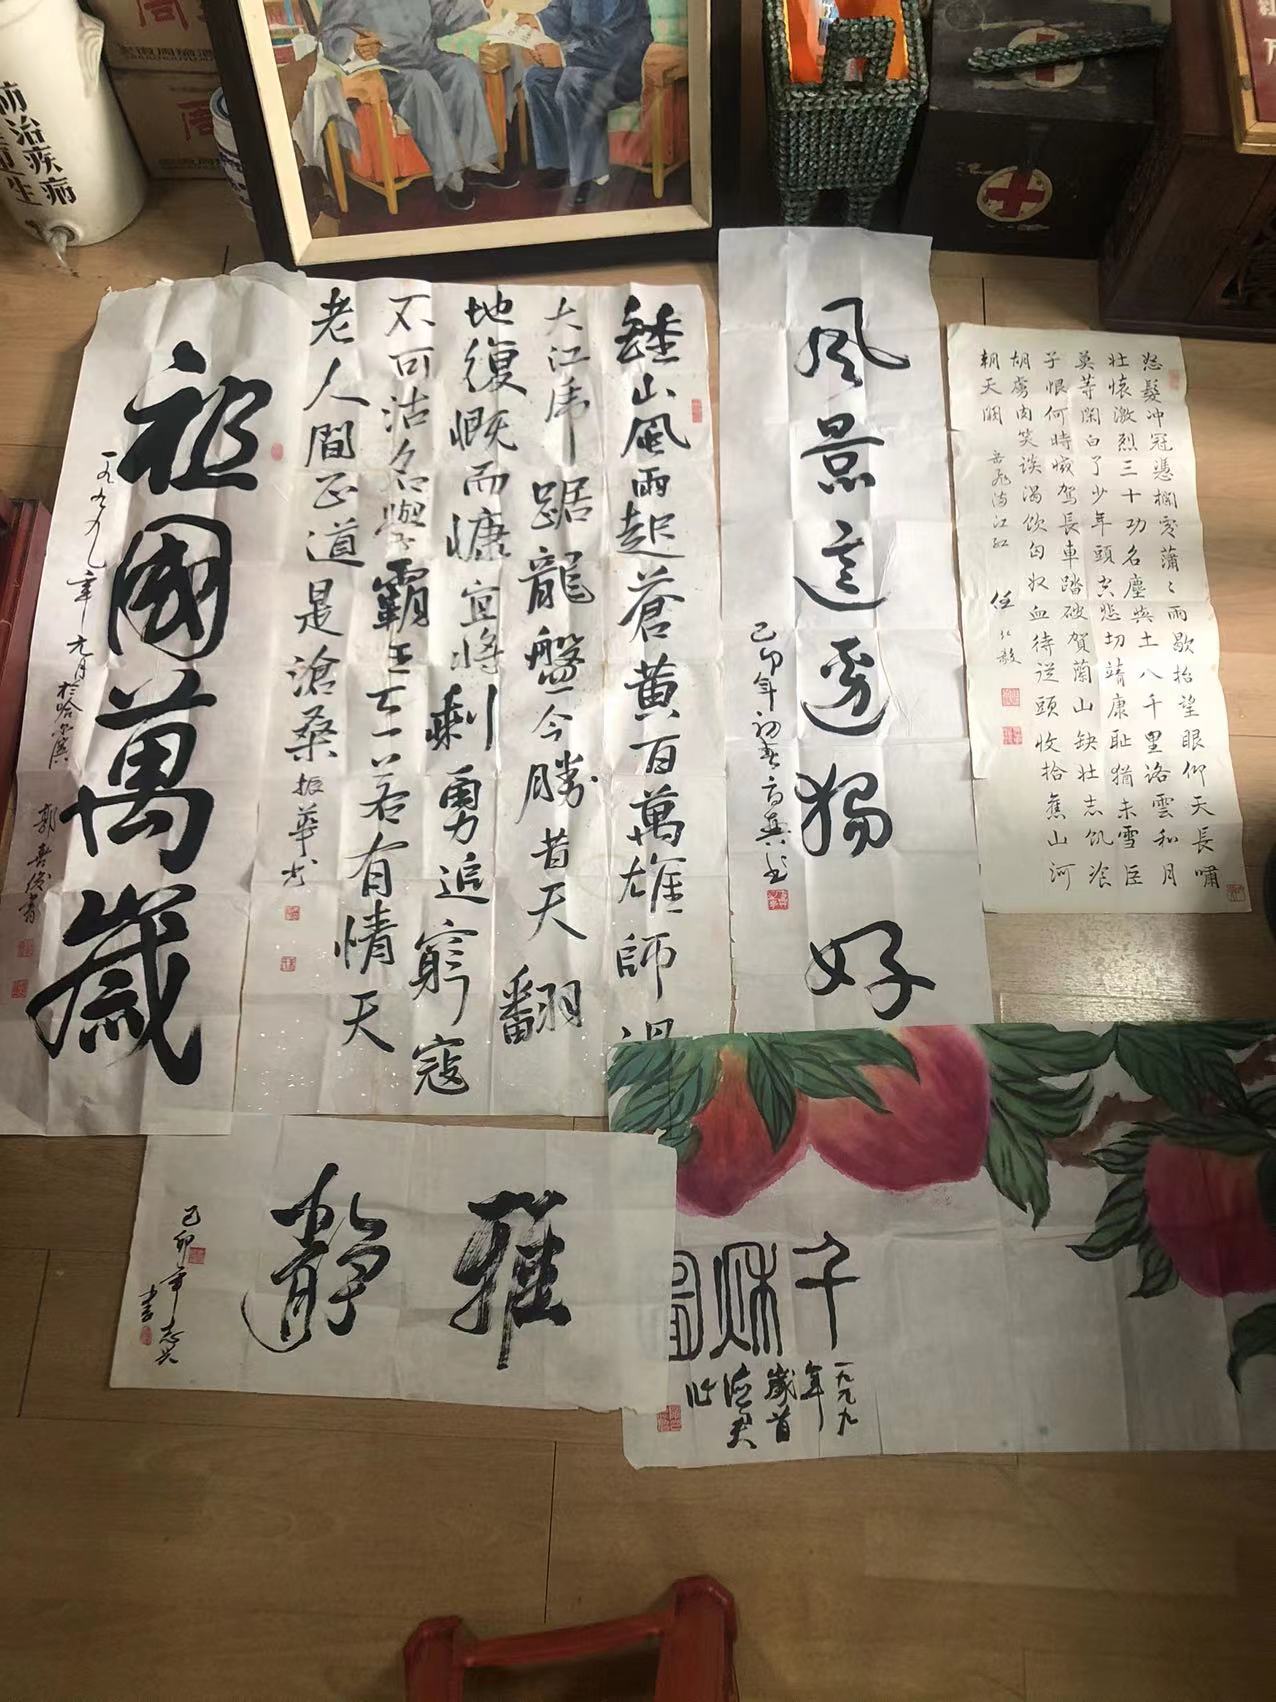 防治疾病
卫生
祖國萬歲
一九九九年元月於哈尔滨
郭喜俊書
鍾山風雨起蒼黄百萬雄師過
大江虎踞龍盤今勝昔天翻
地復慨而慷宜將剩勇追窮寇
不可沽名學霸王天若有情天
老人間正道是滄桑振華书
風景這邊獨好
己卯年初春
怒髮冲冠憑欄處蕭〻雨歇抬望眼仰天長嘯
壮懷激烈三十功名塵與土八千里路雲和月
莫等閑白了少年頭空悲切靖康耻猶未雪臣
子恨何時憾駕長車踏破賀蘭山缺壮志飢飡
胡虜肉笑談渴飲匈奴血待從頭收拾舊山河
朝天闕
岳飛满江红
雅静
己卯年志兴書
千秋圖
一九九九
年
歲首